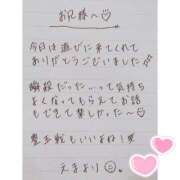 お兄様へ♡
今日は遊びに来てくれて
ありがとうございました
瞬殺だった...って気持ち
よくなってもらえてお話
もできて楽しかった〜
もいいよね!
えまより